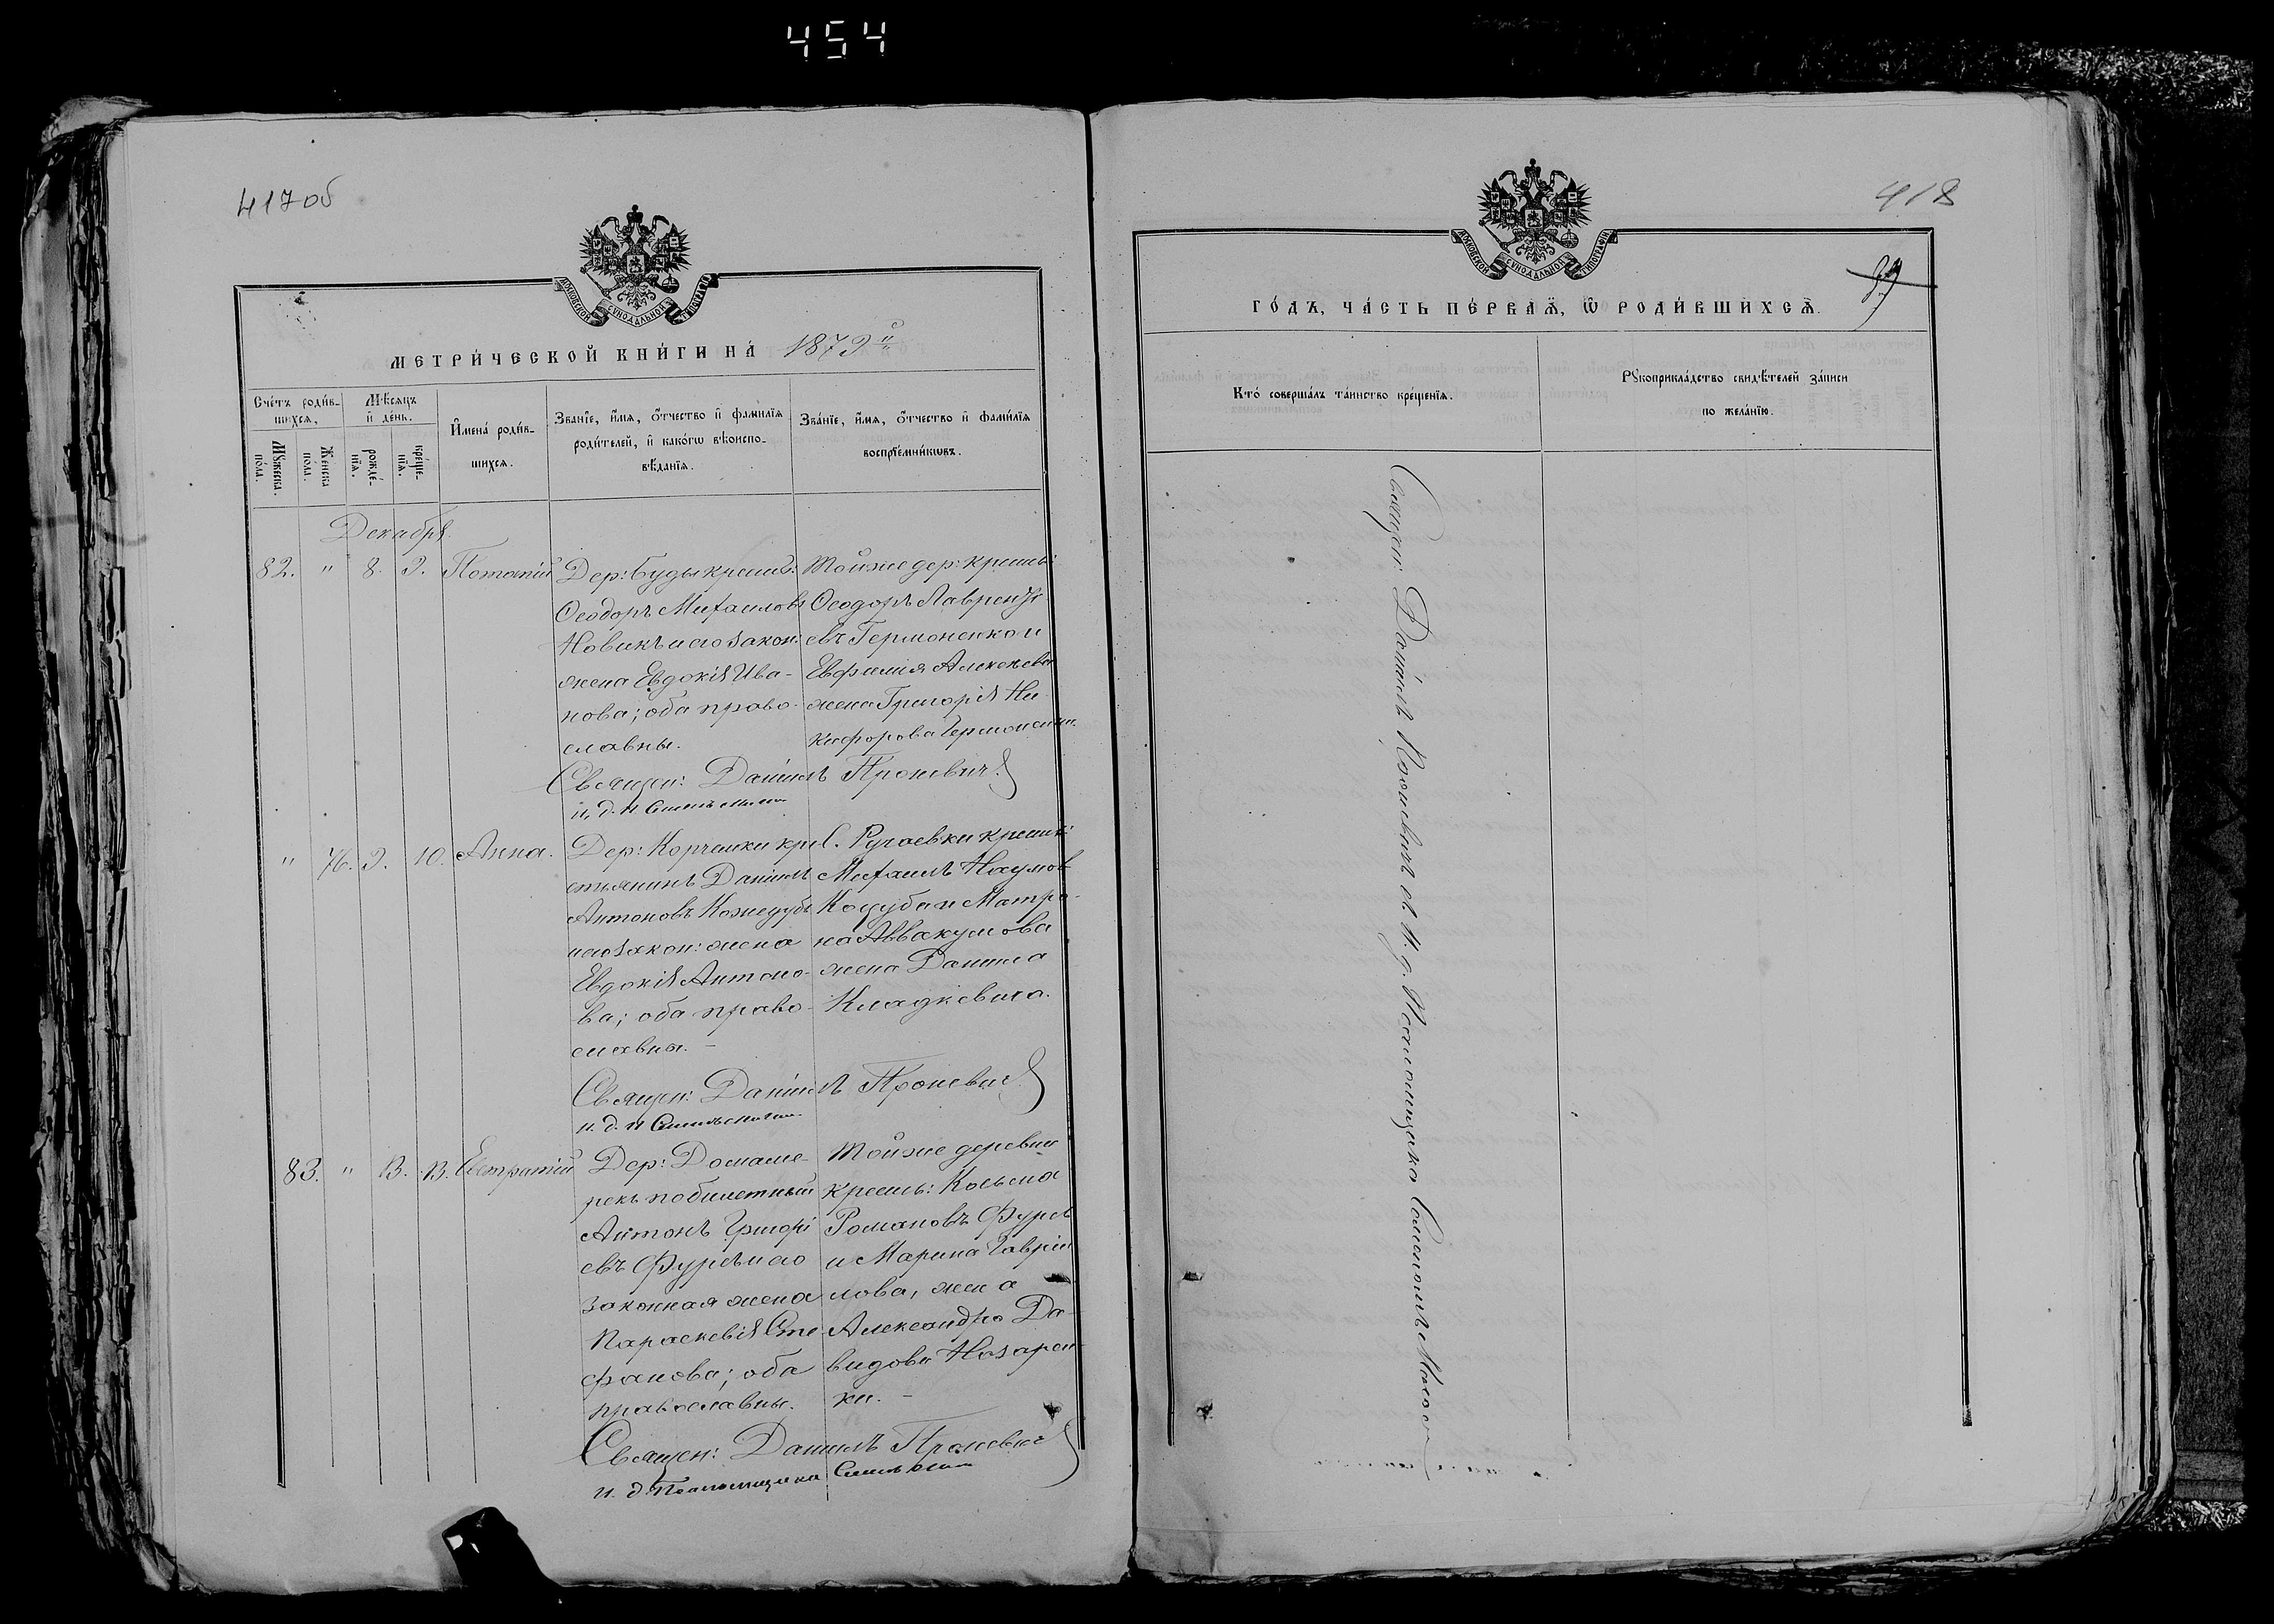 454
417об
МОСКОВСКОЙ СУНОДАЛЬНОЙ ТИПОГРАФІИ
МЕТРИ́ЧЕСКОЙ КНИ́ГИ НА́ 1879й
Сче́тъ роди́в-
шихся,
Мѣ́сяцъ
и҆ де́нь.
Мꙋ́жеска.
по́ла.
Же́нска
по́ла.
рожде́-
нїѧ.
креще́-
нїѧ.
И҆мена́ роди́в-
шихсѧ.
Зва́нїе, и҆́мѧ, ѻ҆́тчество и҆ фами́лїѧ
роди́телей, и҆ како́гѡ вѣроиспо-
вѣ́данїѧ.
Зва́нїе, и҆́мѧ, ѻ҆́тчество и҆ фами́лїѧ
воспрїе́мникѡвъ.
Декабря.
82. " 8. 9. Потапій
Дер: Буды крест:
Ѳеодоръ Михаиловъ
Новикъ и его закон:
жена Евдокія Ива-
нова; оба право-
славны.
Тойже дер: крест:
Ѳеодоръ Лаврентi-
евъ Гермоненко и
Евфимія Алексѣева
жена Григорія Ни-
кифорова
Священ: Даніилъ Проневичъ
и. д. п.
" 76. 9. 10. Анна.
Дер: Корчемки кре-
стьянинъ Даніилъ
Антоновъ Кожедубъ
и его закон: жена
Евдокія Антоно-
ва; оба право-
славны. -
С. Ругаевки крест:
Михаилъ Наумовъ
Коцуба и Матро-
на Аввакумова
жена Даніила
Кладкевича.
Священ: Даніилъ Проневичъ
и. д. п.
83. " 13. 13. Евстратій
Дер: Домаме-
рекъ побилетный
Антонъ Григорі
евъ Фурсъ и его
законная жена
Параскевія Сте-
фанова; оба
православны.
Тойже деревни
крест: Косьма
Романовъ Фурсъ
и Марина Гавріи
лова, жена
Александра Да-
видова Назарен-
ки. -
Священ: Даніилъ Проневичъ
и. д. Псаломщика
418
МОСКОВСКОЙ СУНОДАЛЬНОЙ ТИПОГРАФІИ
ГО́ДЪ, ЧА́СТЬ ПЕ́РВАѦ, Ѽ РОДИ́ВШИХСѦ.
Кто́ соверша́лъ та́инство креще́нїѧ.
Рꙋкоприкла́дство свидѣ́телей за́писи
по жела́нїю.
Священ: Даніилъ Проневичъ съ и. д. Псаломщика